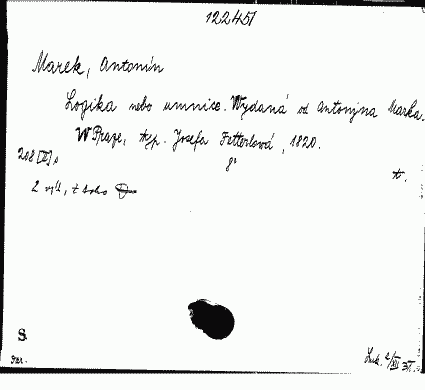 122451
Marek, Antonín
Logika nebo umnice. Wydaná od Antonjna Marka.
W Praze, typ. Josefa Fetterlová, 1820.
208 [II] s. 8°
2 výt., z toho
S.